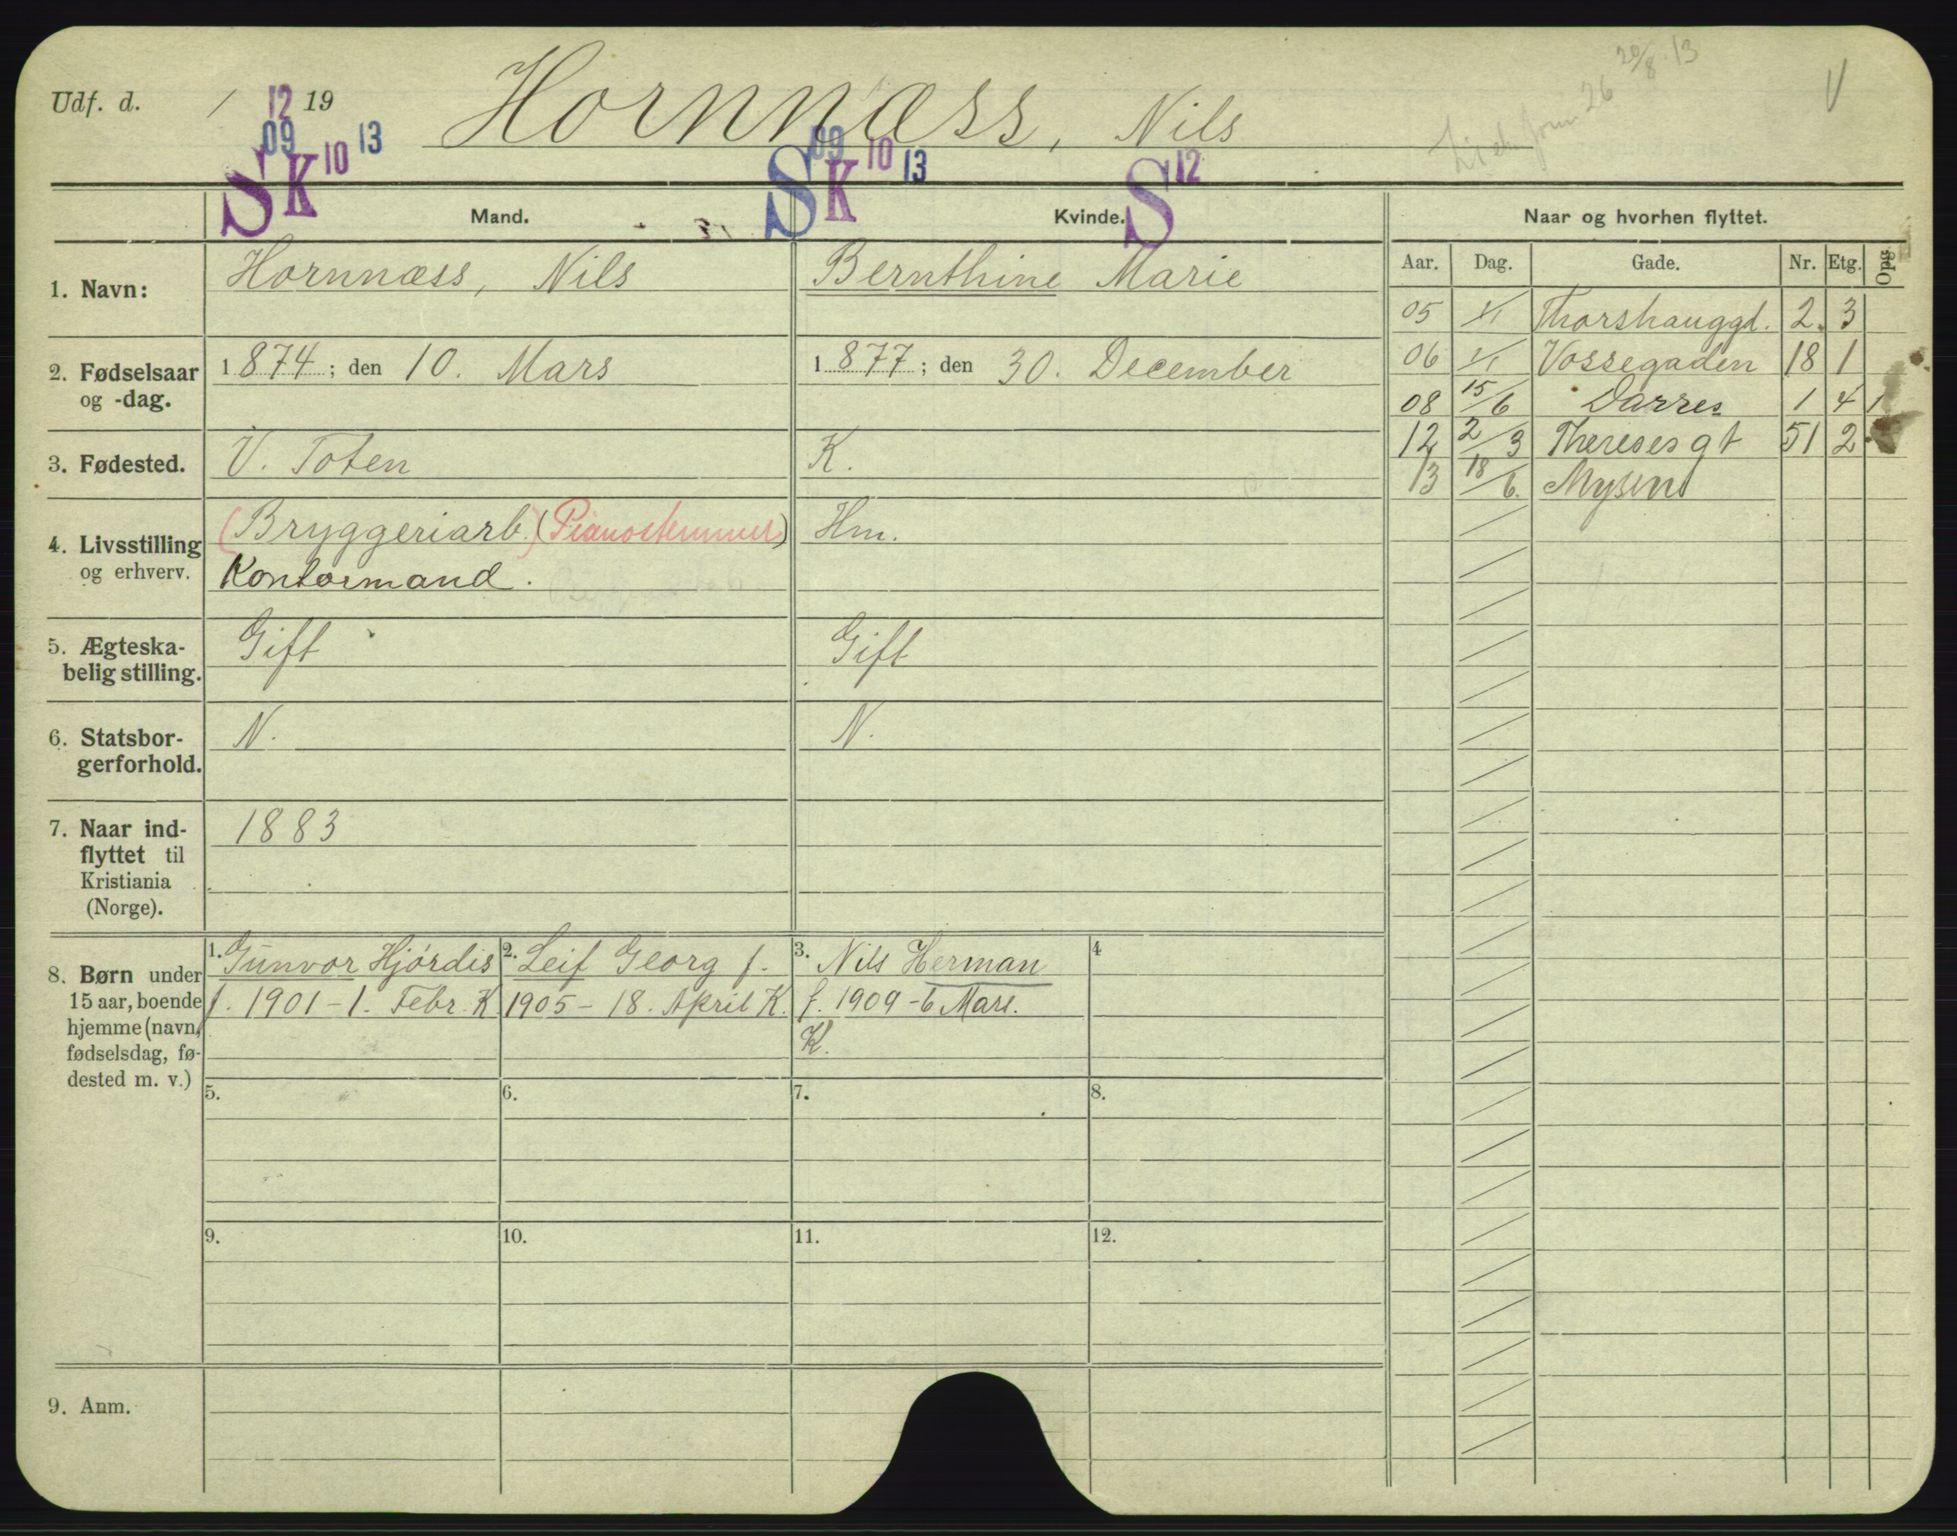 Udf. d. / 12 19 Hornnæss, Nils 20/8 13
09 10 13 09 10 13 12 26
SK SK S V
Mand. Kvinde. Naar og hvorhen flyttet.
Aar. Dag. Gade. Nr. Etg. Opg.
1. Navn: Hornnæss, Nils Bernthine Marie
2. Fødselsaar og -dag. 1874; den 10. Mars 1877; den 30. December
3. Fødested. V. Toten K.
4. Livsstilling og erhverv. (Bryggeriarb.) (Pianostemmer) Hm.
Kontormand.
5. Ægteska-
belig stilling. Gift Gift
6. Statsbor-
gerforhold. N. N.
7. Naar ind-
flyttet til
Kristiania
(Norge). 1883
05 Thorshauggd. 2. 3
06 Vossegaden 18 1
08 15/6 Darres 1 4 1
12 2/3 Theresesgt 51 2
13 18/6. Mysen
8. Børn under
15 aar, boende
hjemme (navn,
fødselsdag, fø-
dested m. v.)
1. Gunvor Hjørdis
f. 1901 - 1. Febr. K
2. Leif Georg f.
1905 - 18. April K.
3. Nils Herman
f. 1909 - 6 Mars.
K.
4
5. 6. 7. 8.
9. 10. 11. 12.
9. Anm.